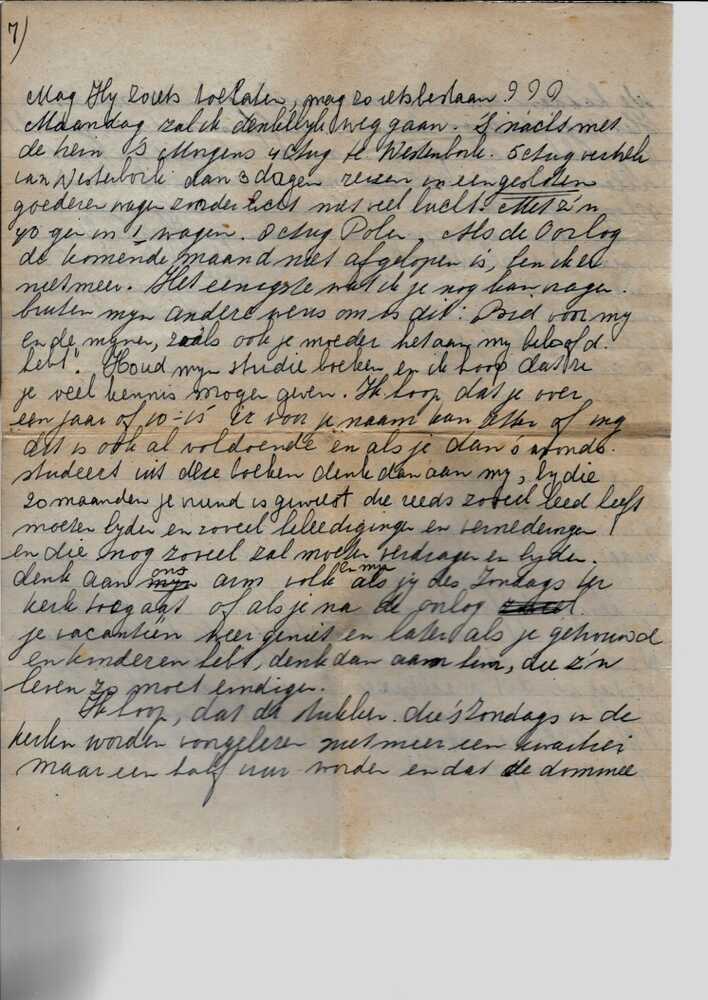 7)
Mag Hy zoiets toelaten, mag zo iets bestaan ???
Maandag zal ik denkelyk weggaan. 's nachts met
de trein 's Morgens 4 Aug te Westerbork. 5 Aug vertrek
van Westerbork dan 3 dagen reizen in een gesloten
goederen wagen zonder licht niet veel lucht. Met z'n
40 gen in 1 wagen. 8 Aug Polen. Als de Oorlog
de komende maand niet afgelopen is, ben ik er
niet meer. Het eenigste wat ik je nog kan vragen
buiten myn andere wens om is dit: Bid voor my
en de mynen, zoals ook je moeder het aan my beloofd
hebt. Houd myn studie boeken en ik hoop dat ze
je veel kennis mogen geven. Ik hoop, dat je over
een jaar of 10-15 Ir voor je naam kan zetten of ing
dit is ook al voldoende en als je dan 's avonds
studeert uit deze boeken denk dan aan my, hy die
20 maanden je vriend is geweest die reeds zoveel leed heeft
moeten lyden en zoveel beleedigingen en vernederingen
en die nog zoveel zal moeten verdragen en lyden.
denk aan ons arm volk en my als jy des Zondags ter
kerk toe gaat of als je na de oorlog
je vacantiën weer geniet en later als je getrouwd
en kinderen hebt, denk dan aan hem, die z'n
leven zo moet eindigen.
Ik hoop, dat de stukken die 's Zondags in de
kerken worden voorgelezen niet meer een kwartier
maar een half uur worden en dat de dominee